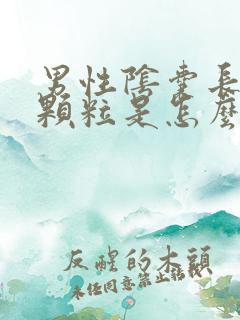 男性陰囊長
顆粒是怎麼
反醒的木頭
未經同意禁止轉載